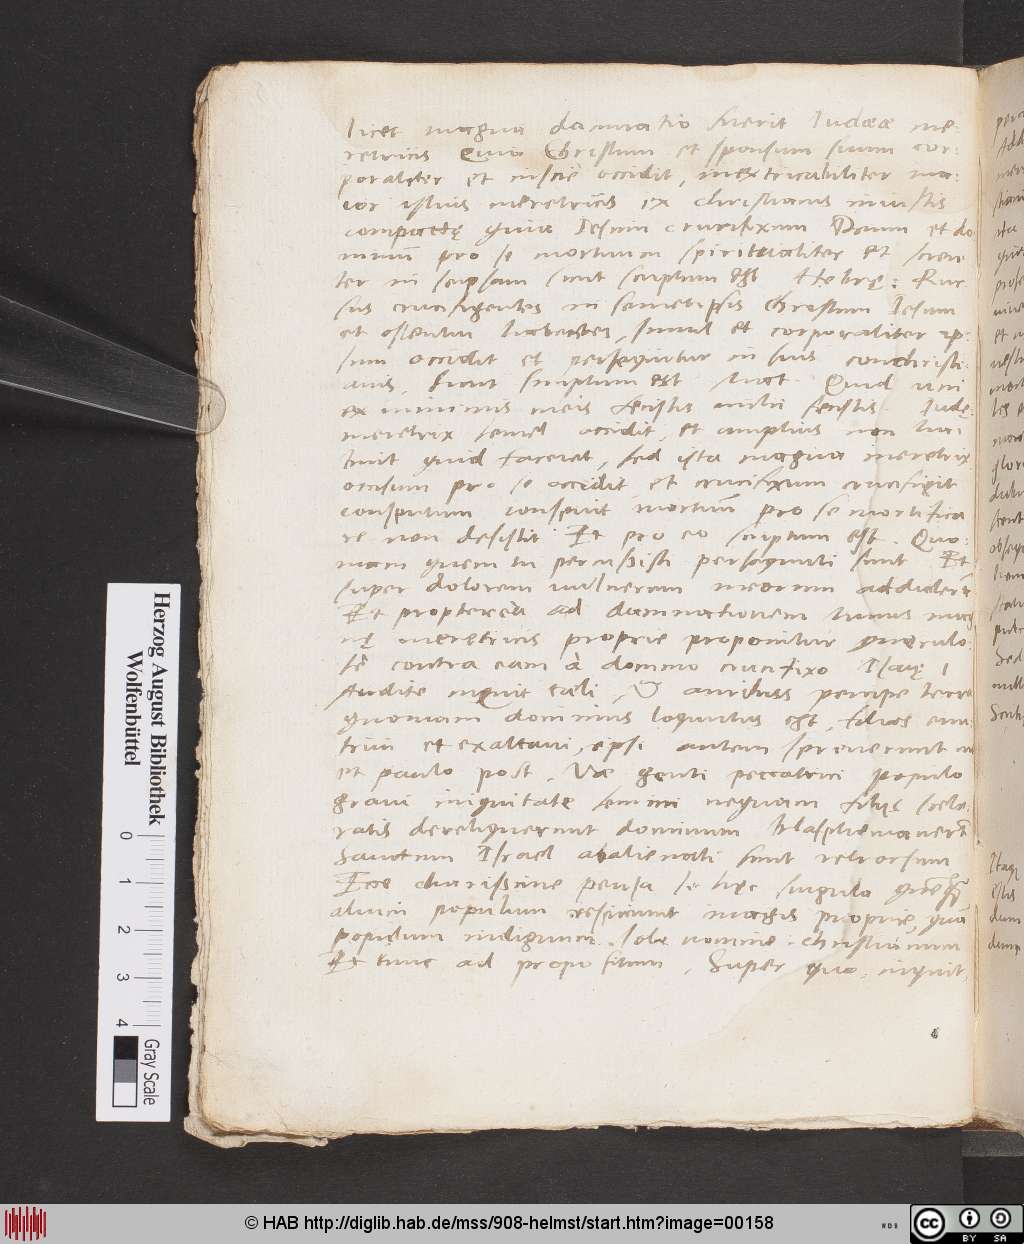 licet magna damnatio fuerit Iudææ me-
retricis Quia Christum et sponsum suum cor-
poraliter et inscie occidit, inextricabiliter ma-
ior istius meretricis ex christianis iniustis
compactę quia Iesum crucifixum Deum et do
minum pro se mortuum spiritualiter et scien
ter in seipsam sicut scriptum est Hebrę: Rur
sus crucifigentes in semetipsis Christum Iesum
et ostentui habentes, simul et corporaliter ip-
sum occidit et persequitur in suis conchristi-
anis, sicut scriptum est Mat. Quid uni
ex minimis meis fecistis mihi fecistis. Iudę-
meretrix semel occidit, et amplius non ha
buit quid faceret, sed ista magna meretrix
occisum pro se occidit et crucifixum crucifigit
consputum conspuit mortuum pro se mortifica
re non desistit Et pro eo scriptum est. Quo-
niam quem tu percussisti persequuti sunt Et
super dolorem uulnerum meorum addiderunt
Et propterea ad damnationem huius mag
nę meretricis proprie proponitur
contra eam à domino crucifixo Isaię 1
Audite inquit cęli, & auribus percipe terra
quoniam dominus loquutus est, filios enu
triui et exaltaui, ipsi autem spreuerunt me
et paulo post. Væ genti peccatrici populo
graui iniquitate semini nequam filijs scele-
ratis dereliquerunt dominum blasphemauerunt
Sanctum Israel abalienati sunt retrorsum
Ecce charissime pensa si hęc singula
alium populum respiciunt magis proprie, quam
populum indignum. solo nomine. christianum
Et tunc ad propositum. Super quo, inquit,
Herzog August Bibliothek
Wolfenbüttel
0 1 2 3 4
Gray Scale
© HAB http://diglib.hab.de/mss/908-helmst/start.htm?image=00158
WDB
cc BY SA